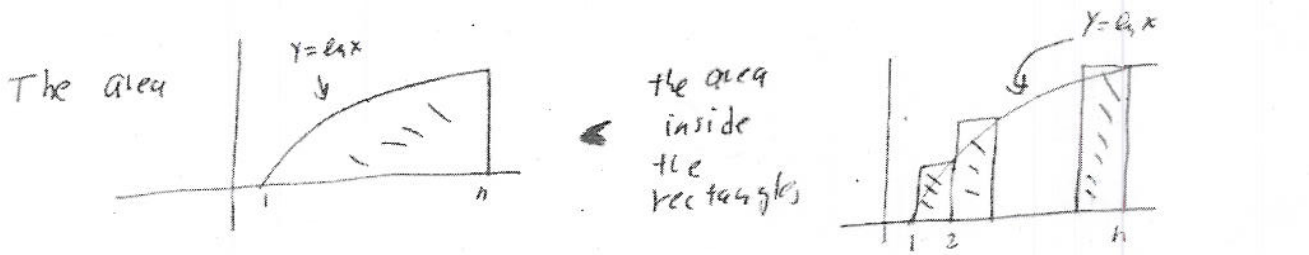 The area
y = ln x
1
n
<
the area
inside
the
rectangles
y = ln x
1
2
n